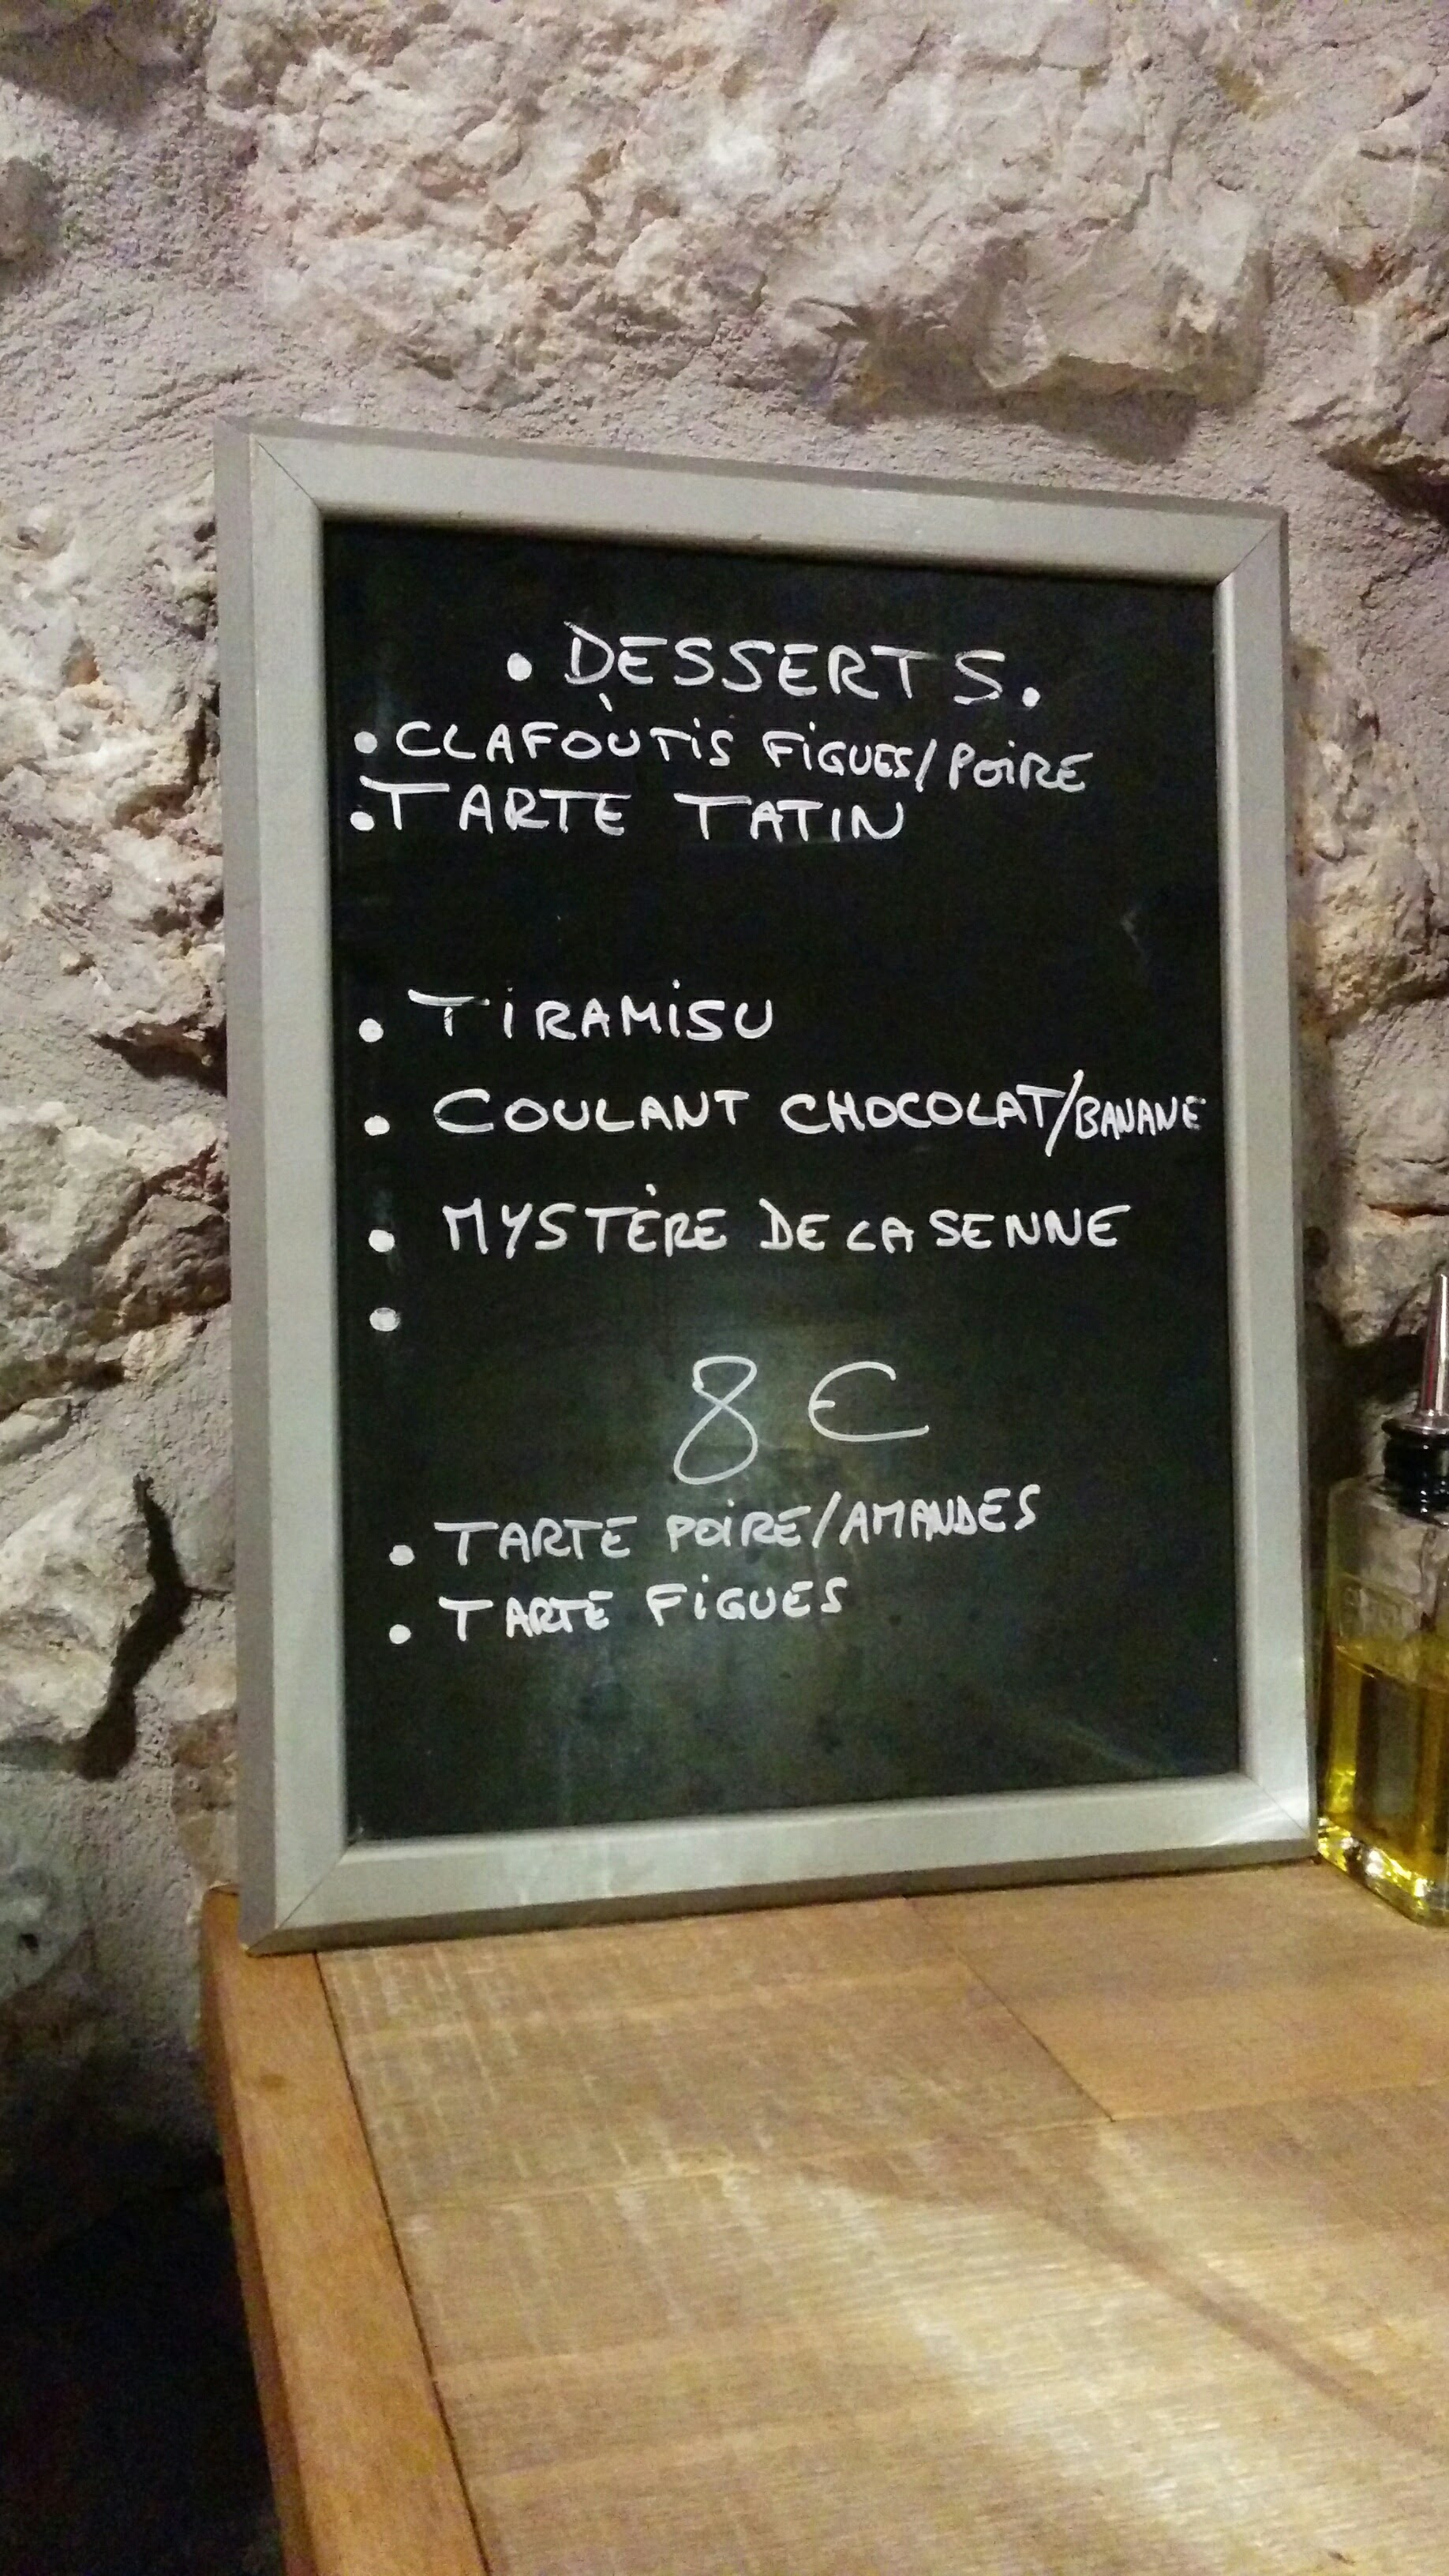 . DESSERTS.
• CLAFOÙTiS FiGUES/POiRE
• TARTE TATIN
• TiRAMiSU
• COULANT CHOCOLAT/BANANE
• MYSTÈRE DE LA SENNE
•
8 €
• TARTE POiRE/AMANDES
• TARTE FiGUES